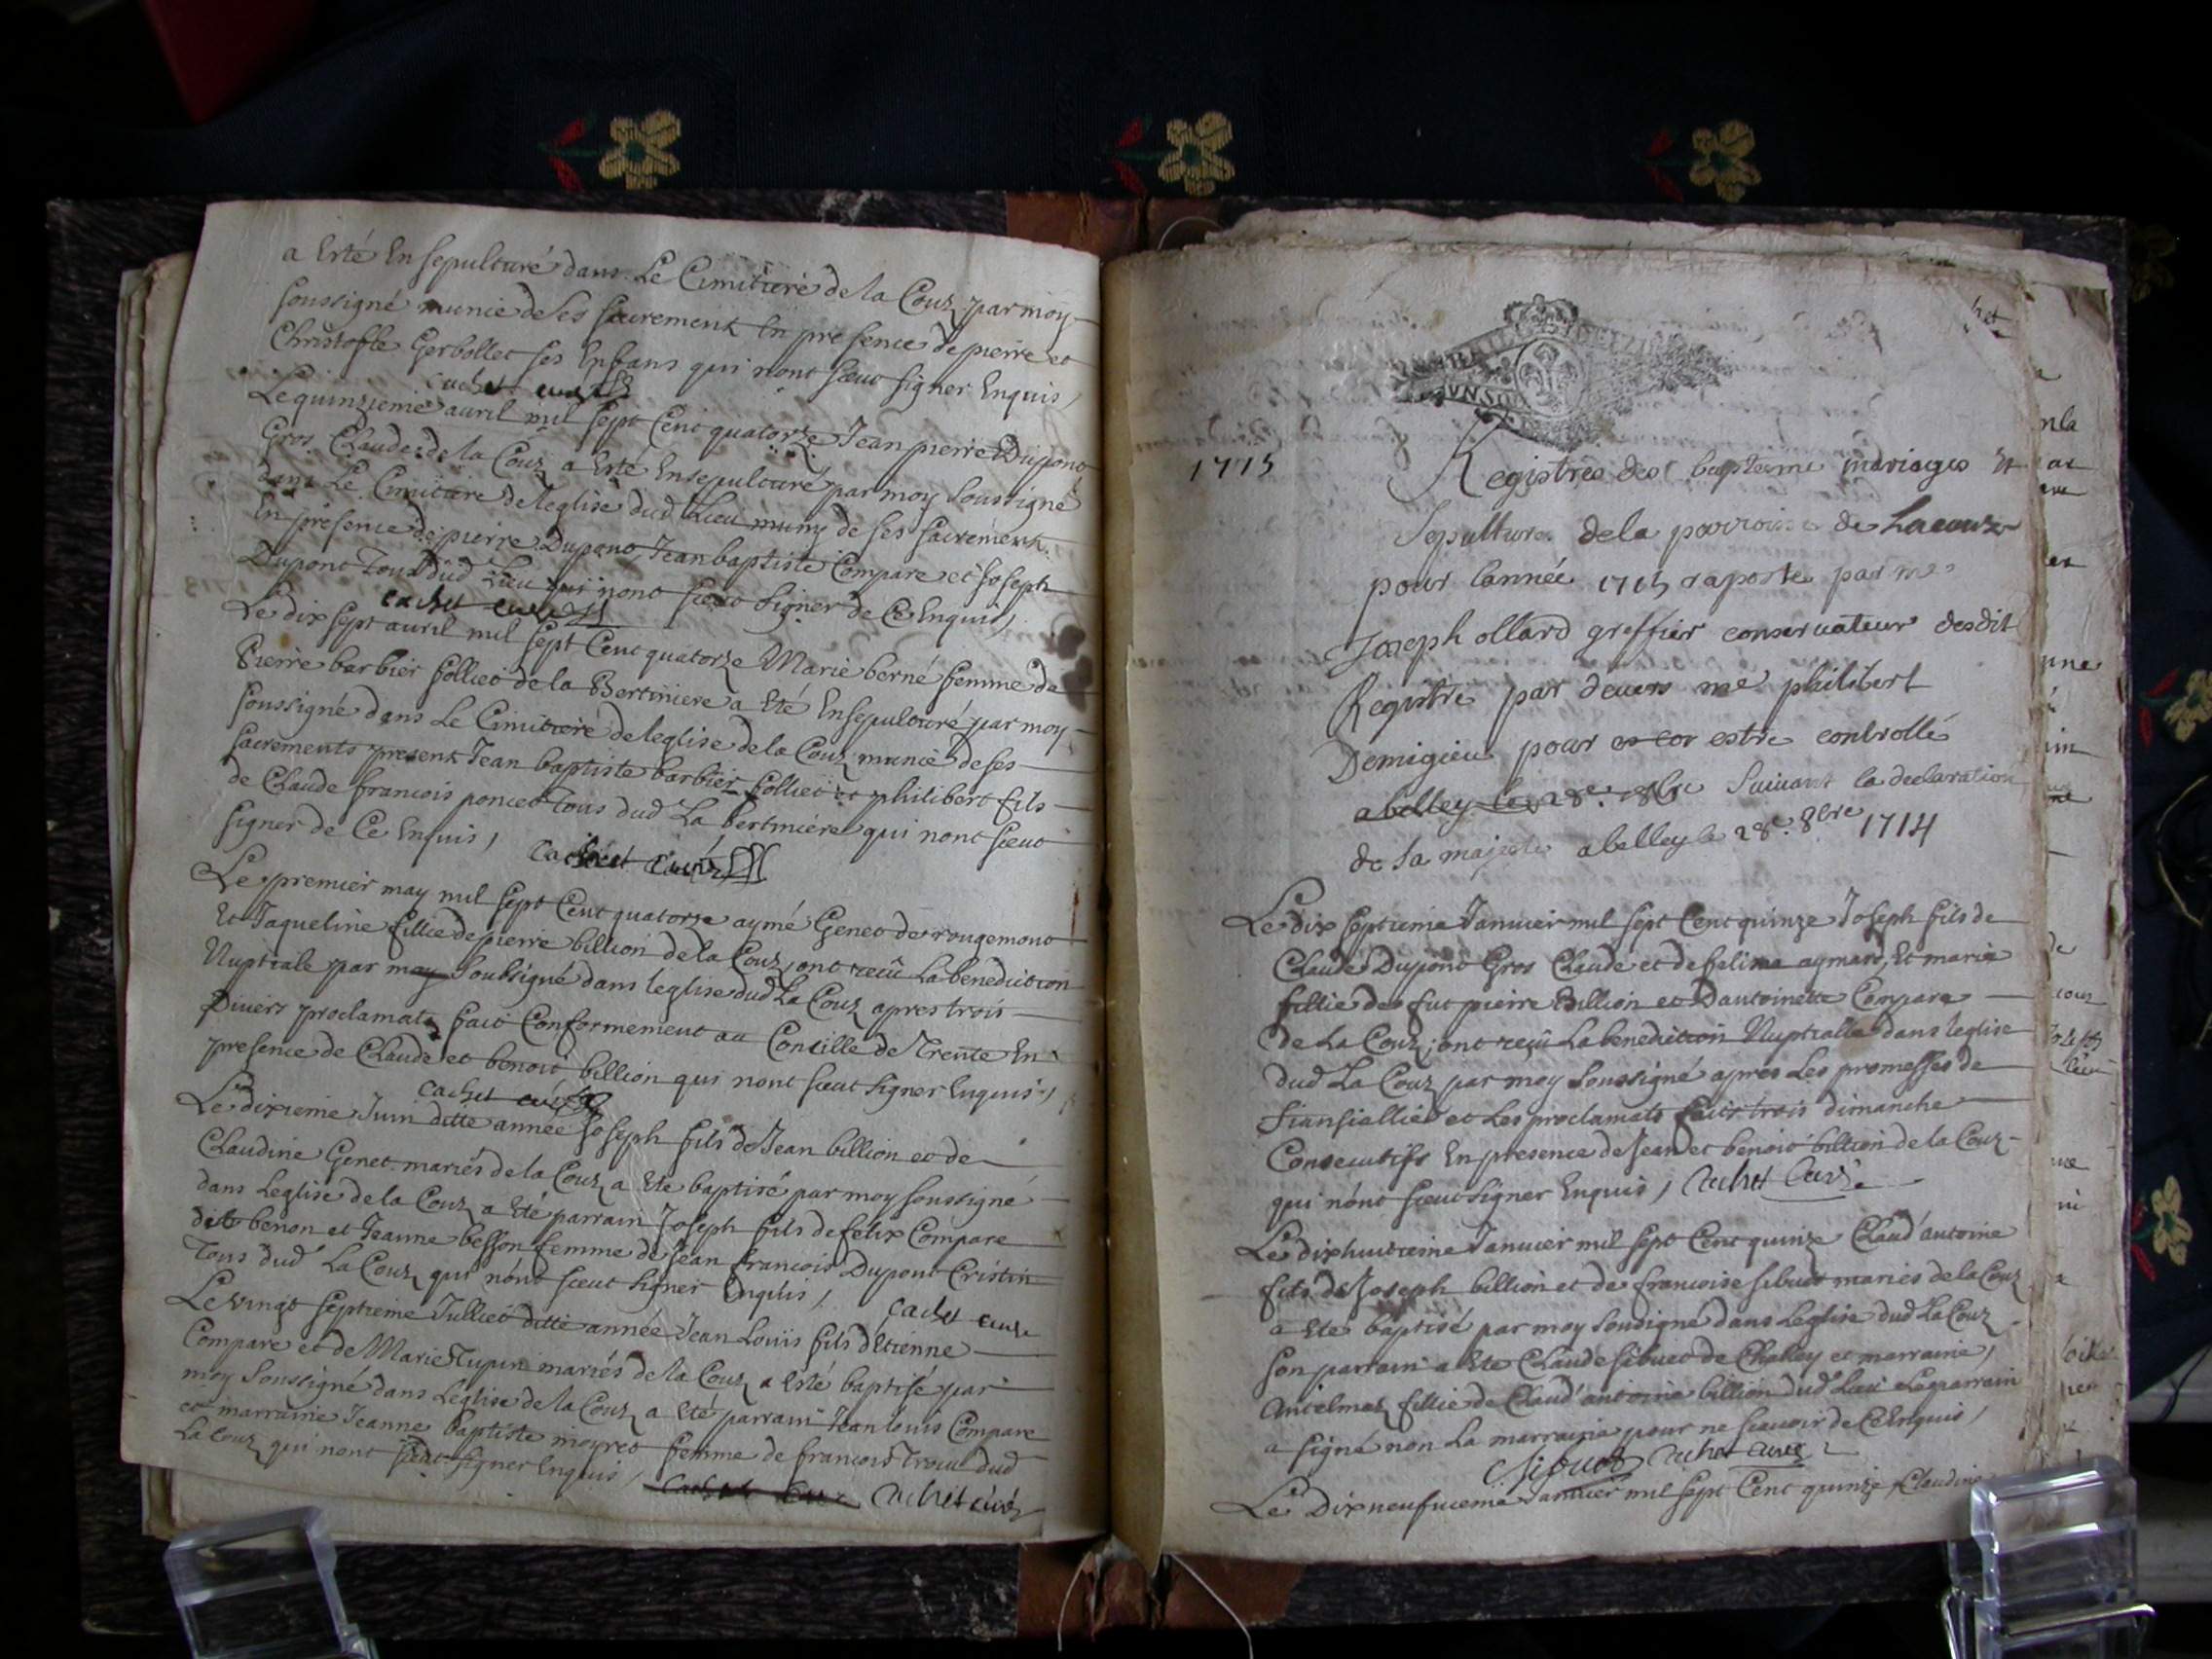 a Esté Ensepulturé dans Le Cimitiere de la Couz par moy
soussigné munie de ses sacrement En presence de pierre et
Christofle Gerbollet ses Enfans qui nont sceut signer Enquis /
cachet curé
Le quinzieme auril mil sept Cent quatorze Jean pierre Dupont
Gros Claude de la Couz a Esté Ensepulturé par moy soussigné
dans Le Cimitiere de leglise dud Lieu muny de ses sacrement
En presence de pierre Dupont, Jean baptiste Compare et Joseph
Dupont Tous dud Lieu qui nont sceut signer de Ce Enquis /
cachet curé
Le dix sept auril mil sept Cent quatorze Marie berné femme de
Pierre barbier folliet de la Bertiniere a Eté Ensepulturé par moy
soussigné dans Le Cimitiere de leglise de la Couz munie de ses
sacrements present Jean baptiste barbier folliet et philibert fils
de Claude francois poncet Tous dud La bertiniere qui nont sceut
signer de Ce Enquis / cachet curé
Le premier may mil sept Cent quatorze aymé Genet de rougemont
Et Jaqueline fillie de pierre billion de la Couz, ont reçû La benediction
Nuptiale par moy Soubsigné dans leglise dud La Couz apres trois
Divers proclamats fait Conformement au Concille de Trente En
presence de Claude et benoit billion qui nont sceut signer Enquis /
cachet curé
Le dixieme Juin ditte année Joseph fils de Jean billion et de
Claudine Genet mariés de la Couz a Ete baptisé par moy soussigné
dans Leglise de la Couz a Eté parrain Joseph fils de felix Compare
dit benon et Jeanne besson femme de Jean francois Dupont Cristin
Tous dud La Couz qui nont sceut signer Enquis / cachet curé
Le vingt septieme Jullied ditte année Jean Louis fils d'Etienne
Compare et de Marie Tupin mariés de la Couz a Esté baptisé par
moy Soussigné dans Leglise de la Couz a Eté parrain Jean louis Compare
et marraine Jeanne baptiste moyret femme de francois Trou dud
La Couz qui nont sceut signer Enquis / cachet curé cachet curé
1715
Registres des baptisme mariages Et
Sepulture de la parroisse de Lacouz
pour lannée 1715 raporte par me
Joseph ollard greffier conservateur desdit
Registre par devers me philibert
Demigieu pour estre controllé
abelley le 28e 8bre Suivant la declaration
de sa majesté abelley le 28e 8bre 1714
Le dix septieme Januier mil sept Cent quinze Joseph fils de
Claude Dupont Gros Claude et de felima aymard, Et maria
fillie de fut pierre Billion et Dantoinette Compare
de La Couz ; ont reçû La benediction Nuptialle dans leglise
dud La Couz par moy Soussigné apres Les promesses de
fiansiallies et Les proclamats faits trois dimanche
Consecutifs En presence de Jean et benoit billion de la Couz
qui nont sceut signer Enquis / cachet Curé
Le dixhuitieme Januier mil sept Cent quinze Claud antoine
fils de Joseph billion et de francoise sibuet mariés de la Couz
a Eté baptisé par moy soussigné dans Leglise dud La Couz
son parrain a Eté Claude sibuet de Challey et marraine,
Antelmaz fillie de Claud antoine billion dud Lieu Le parrain
a signé non La marraine pour ne sceuoir de Ce Enquis /
C Sibuet cachet curé
Le Dixneufuieme Januier mil sept Cent quinze Claudine